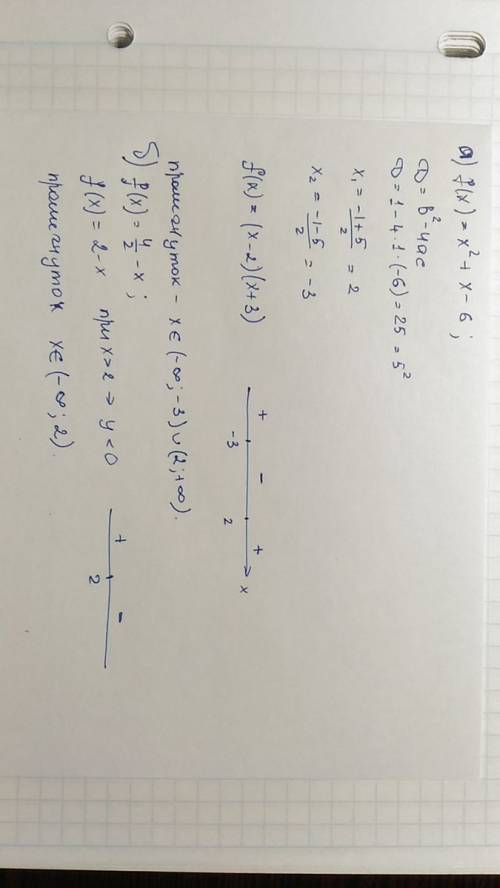 а) f(x) = x² + x - 6;
D = b² - 4ac
D = 1 - 4·1·(-6) = 25 = 5²
x₁ = (-1+5)/2 = 2
x₂ = (-1-5)/2 = -3
f(x) = (x-2)(x+3)
+ - +
-3 2 x
промежуток - x∈(-∞; -3)∪(2; +∞).
б) f(x) = 4/2 - x;
f(x) = 2-x при x>2 ⇒ y<0
+ -
2
промежуток x∈(-∞; 2).